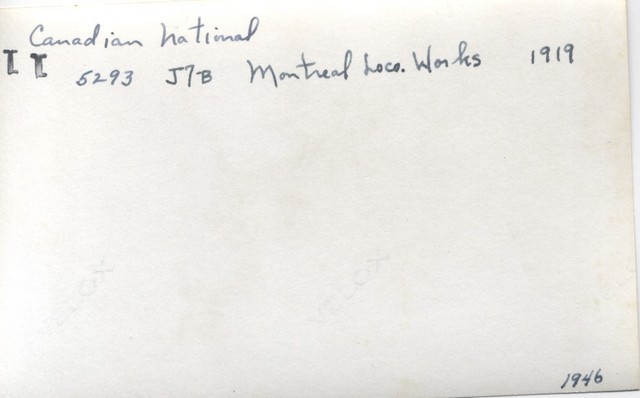 Canadian National
II 5293 J7B Montreal Loco. Works 1919
VELOX VELOX
1946